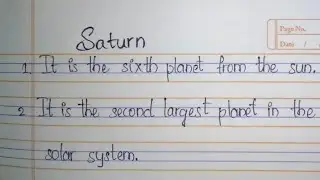 Page No.
Date / /
Saturn
1. It is the sixth planet from the sun.
2 It is the second largest planet in the
solar system.